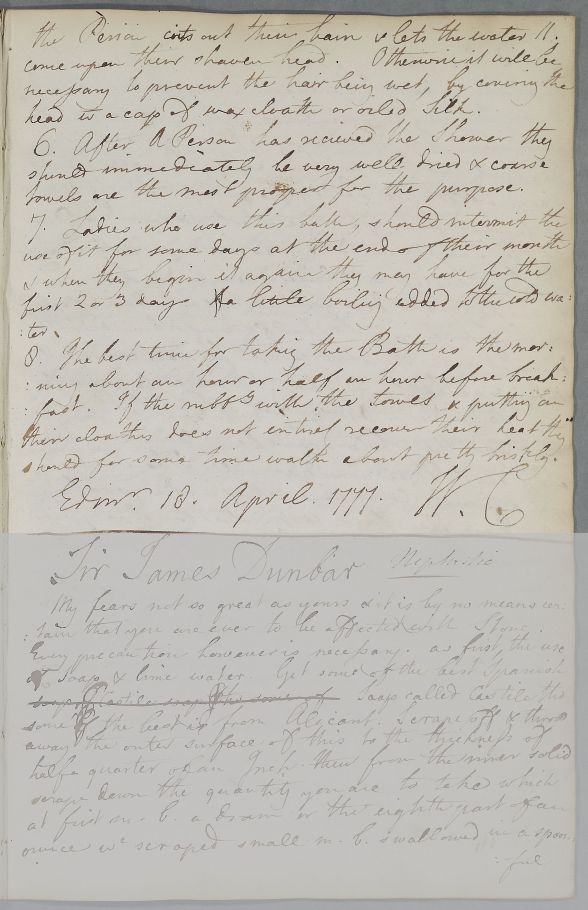 the Person cuts out their hair & lets the water 11.
come upon their shaven head. Otherwise it will be
necessary to prevent the hair being wet, by covering the
head wt a cap of wax cloath or oiled Silk.
6. After A Person has recieved the Shower they
should immediately be very well dried & coarse
towels are the most proper for the purpose.
7. Ladies who use this bath, should intermit the
use of it for some days at the end of their month
& when they begin it again they may have for the
first 2 or 3 days a little boiling added to the cold wa:
:ter.
8. The best time for taking the Bath is the mor:
:ning about an hour or half an hour before break:
:fast. If the rubbg with the towels & putting on
their cloaths does not entirely recover their heat they
should for some time walk about pretty briskly.
Edinr. 18. April. 1777. W. C
Sir James Dunbar Nephritic
My fears not so great as yours & it is by no means cer:
:tain that you are ever to be affected with Stone.
Every precaution however is necessary. as first, the use
of soap & lime water. Get some of the best Spanish
soap Castile soap the some of Soap called Castile tho
some of the best is from Alicant. Scrape off & throw
away the outer surface of this to the thickness of
half a quarter of an Inch then from the inner solid
scrape down the quantity you are to take which
at first m. b. a dram or the eighth part of an
ounce wc scraped small m. b. swallowed in a spoon:
:ful